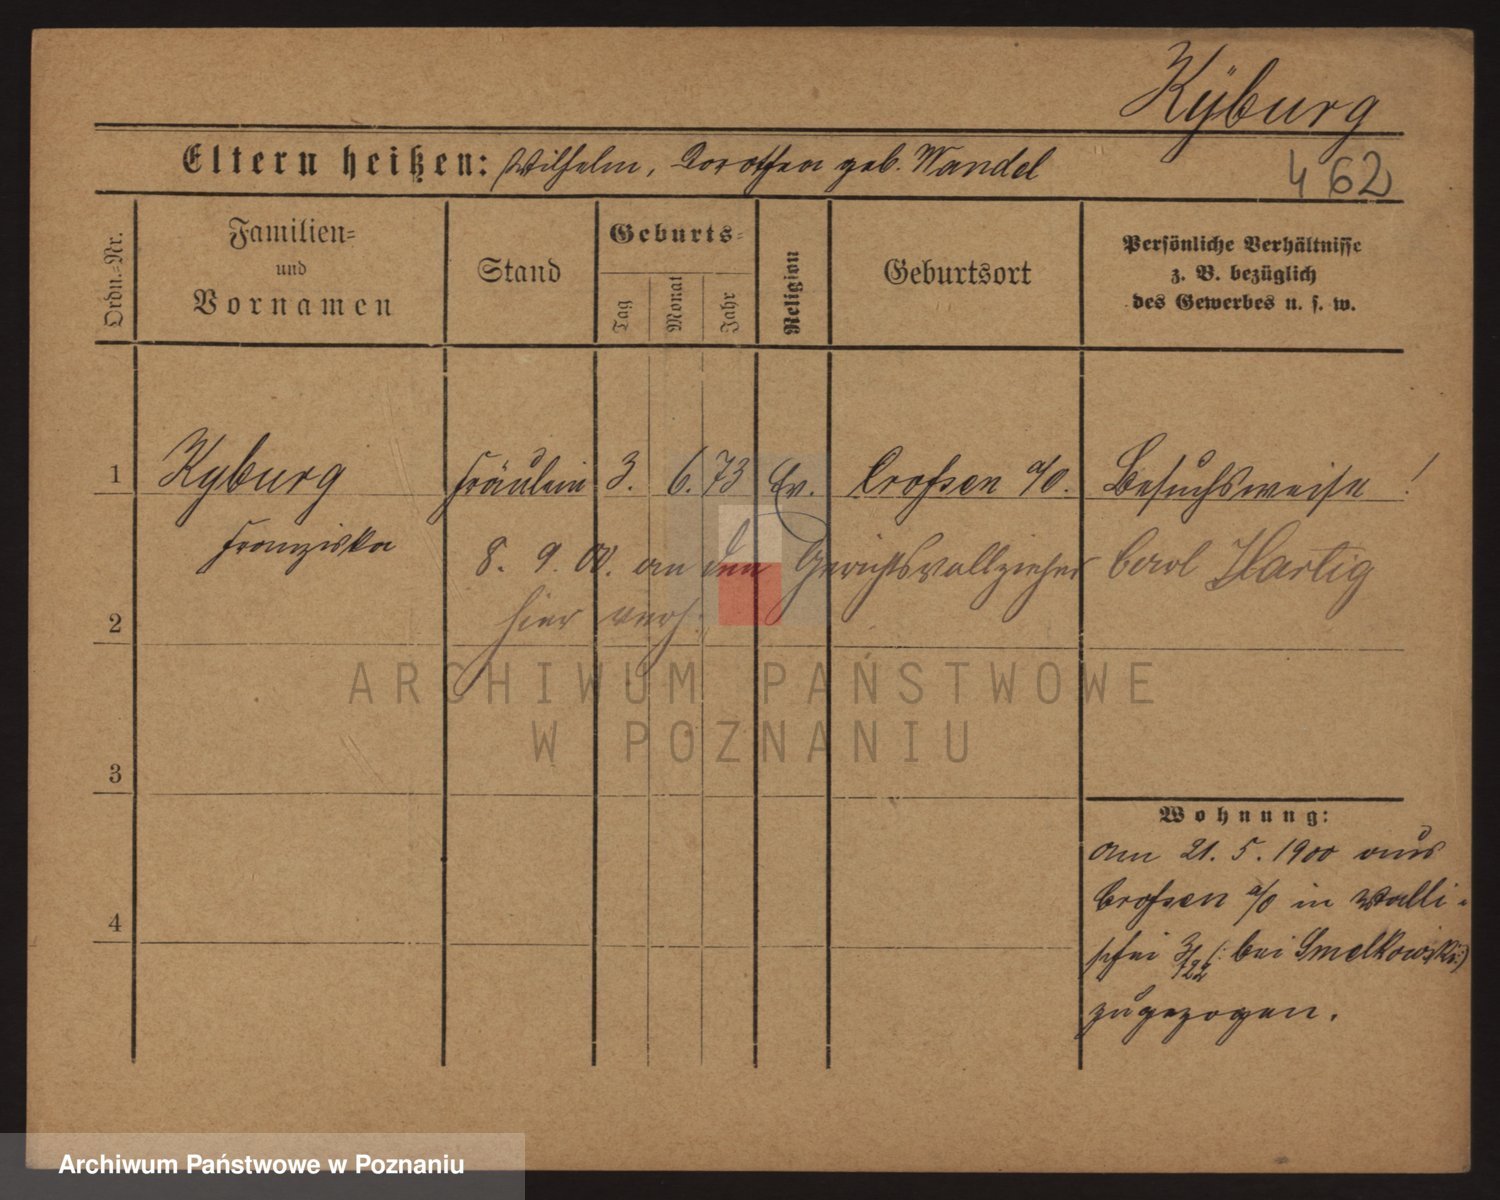 Kÿburg
462
Eltern heißen: Wilhelm, Dorothea geb. Wandel
Ordn.-Nr.
Familien-
und
Vornamen
Stand
Geburts-
Tag
Monat
Jahr
Religion
Geburtsort
Persönliche Verhältnisse
z. B. bezüglich
des Gewerbes u. s. w.
1 Kyburg Fräulein 3. 6. 73 Ev. Crossen a/O. Besuchsweise!
Franziska
8. 9. 00. an den Gerichtsvollzieher Carl Hartig
2 hier verh.
ARCHIWUM PAŃSTWOWE
W POZNANIU
3
Wohnung:
Am 21. 5. 1900 aus
Crossen a/O in
4
bei Smelkowski
zugezogen.
Archiwum Państwowe w Poznaniu